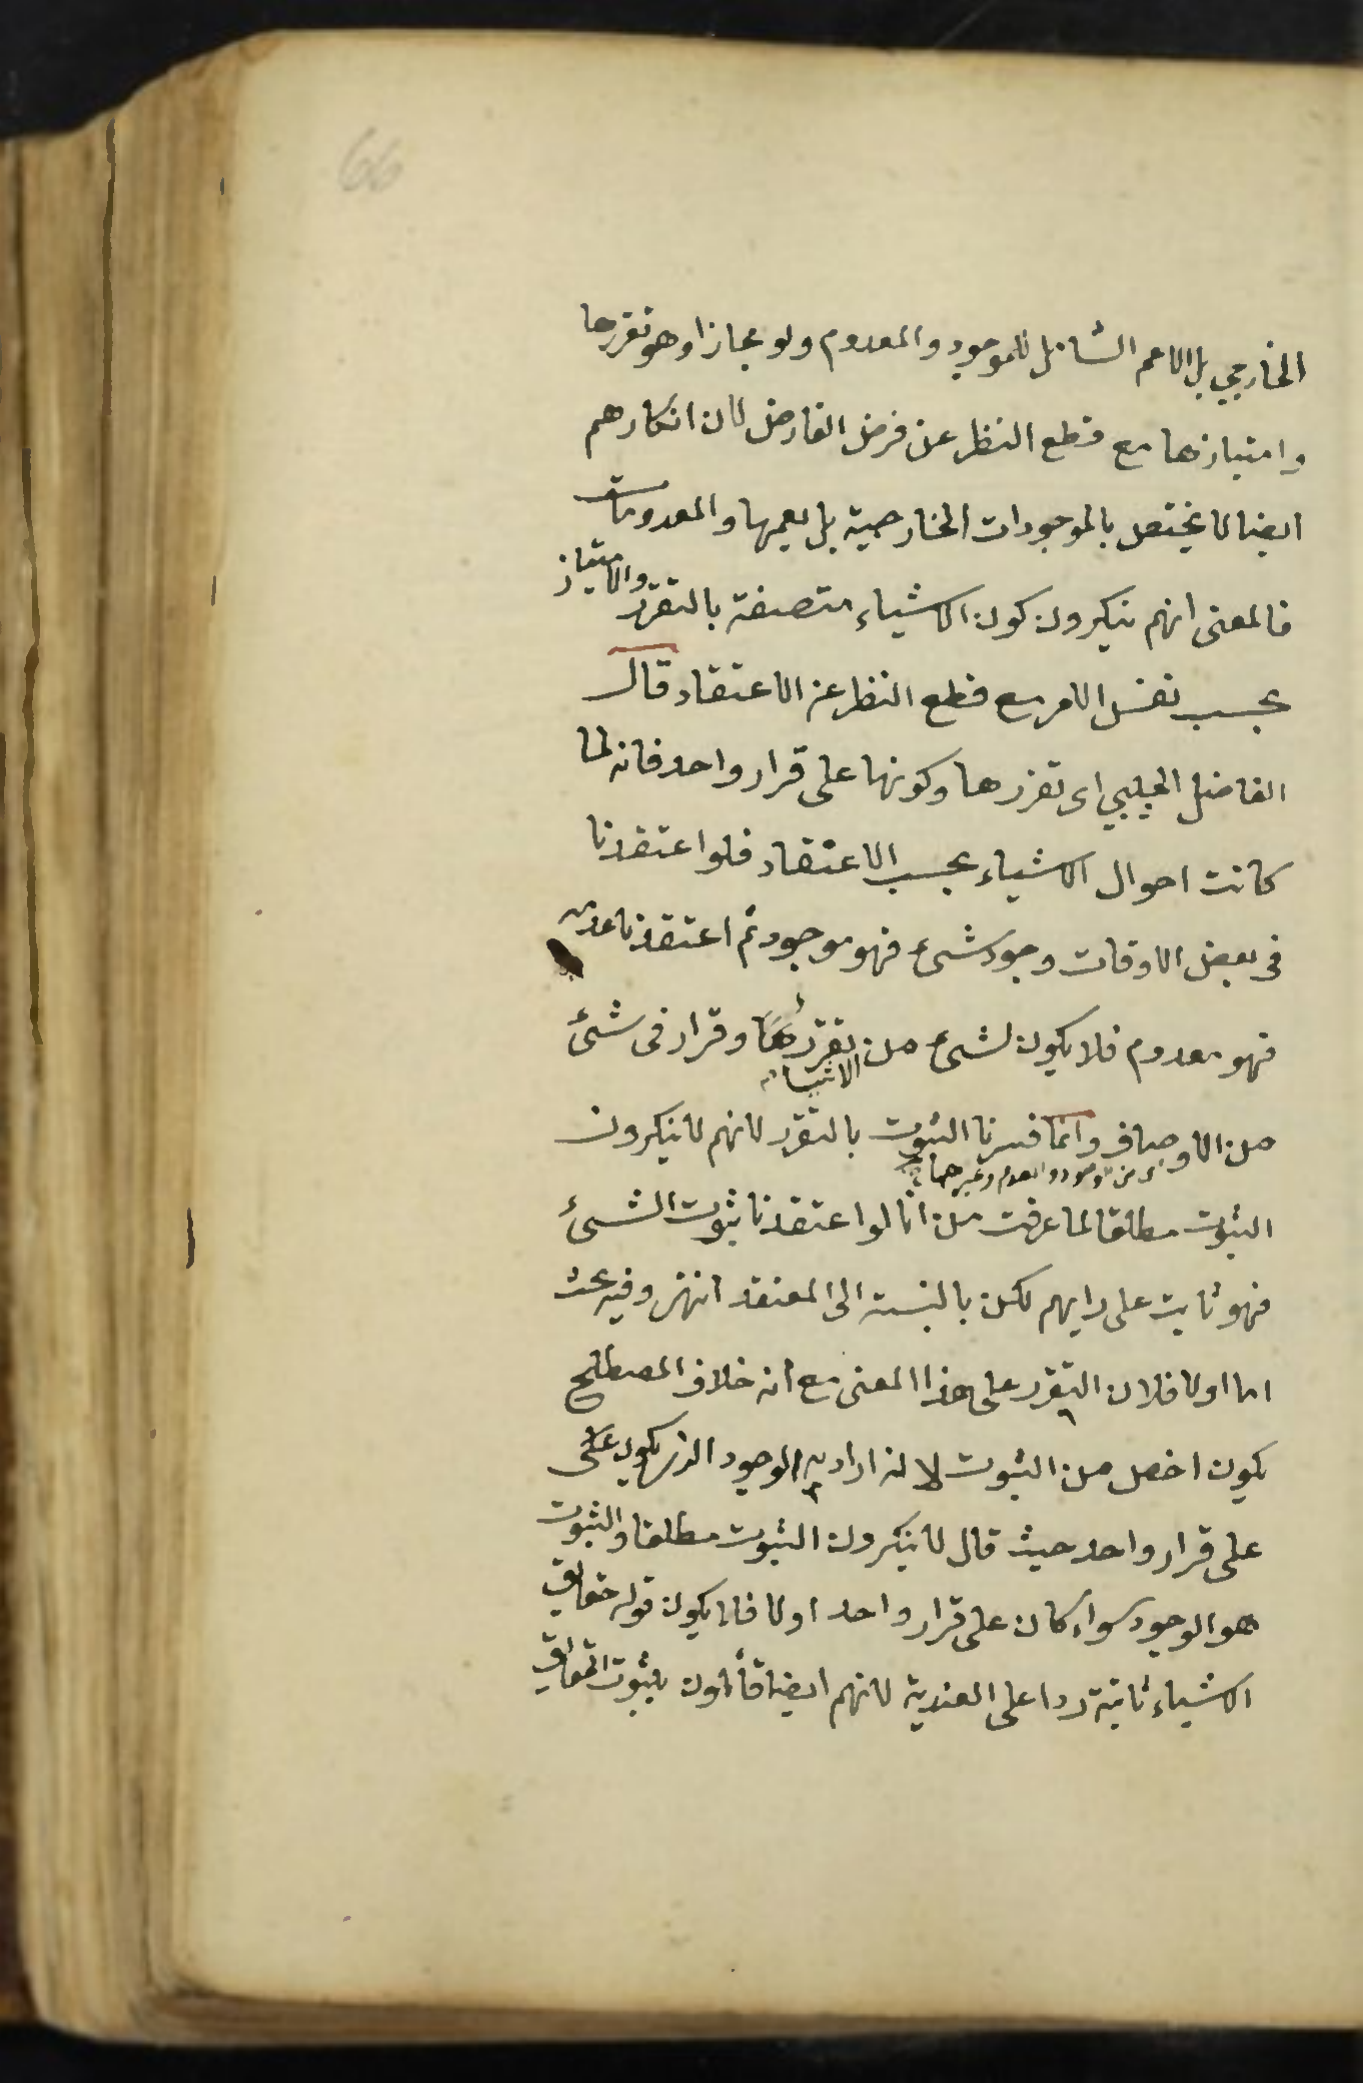 66
الخارجي بل الاعم الشامل للموجود والمعدوم ولو مجازا وهو تقررها
وامتيازها مع قطع النظر عن فرض الفارض لان انكارهم
ايضا لا يختص بالموجودات الخارجية بل يعمها والمعدومات
فالمعنى انهم ينكرون كون الاشياء متصفة بالتقرر والامتياز
بحسب نفس الامر مع قطع النظر عن الاعتقاد قال
الفاضل الچلبي اى تقررها وكونها على قرار واحد فانه لما
كانت احوال الاشياء بحسب الاعتقاد فلو اعتقدنا
فى بعض الاوقات وجود شىء فهو موجود ثم اعتقدنا عدمه
فهو معدوم فلا يكون لشىء من تقرر وقرار فى شئ
الاشياء
من الاوصاف وانما فسرنا الثبوت بالتقرر لانهم لا ينكرون
اى من الموجود والمعدوم وغيرهما
الثبوت مطلقا لما عرفت من انا لو اعتقدنا ثبوت الشئ
فهو ثابت على رايهم لكن بالنسبة الى المعتقد انتهى وفيه بحث
اما اولا فلان التقرر على هذا المعنى مع انه خلاف المصطلح
يكون اخص من الثبوت لانه اراد به الوجود الذى يكون
على قرار واحد حيث قال لا ينكرون الثبوت مطلقا والثبوت
هو الوجود سواء كان على قرار واحد اولا فلا يكون قوله حقايق
الاشياء ثابتة ردا على العندية لانهم ايضا قائلون بثبوت الحقايق